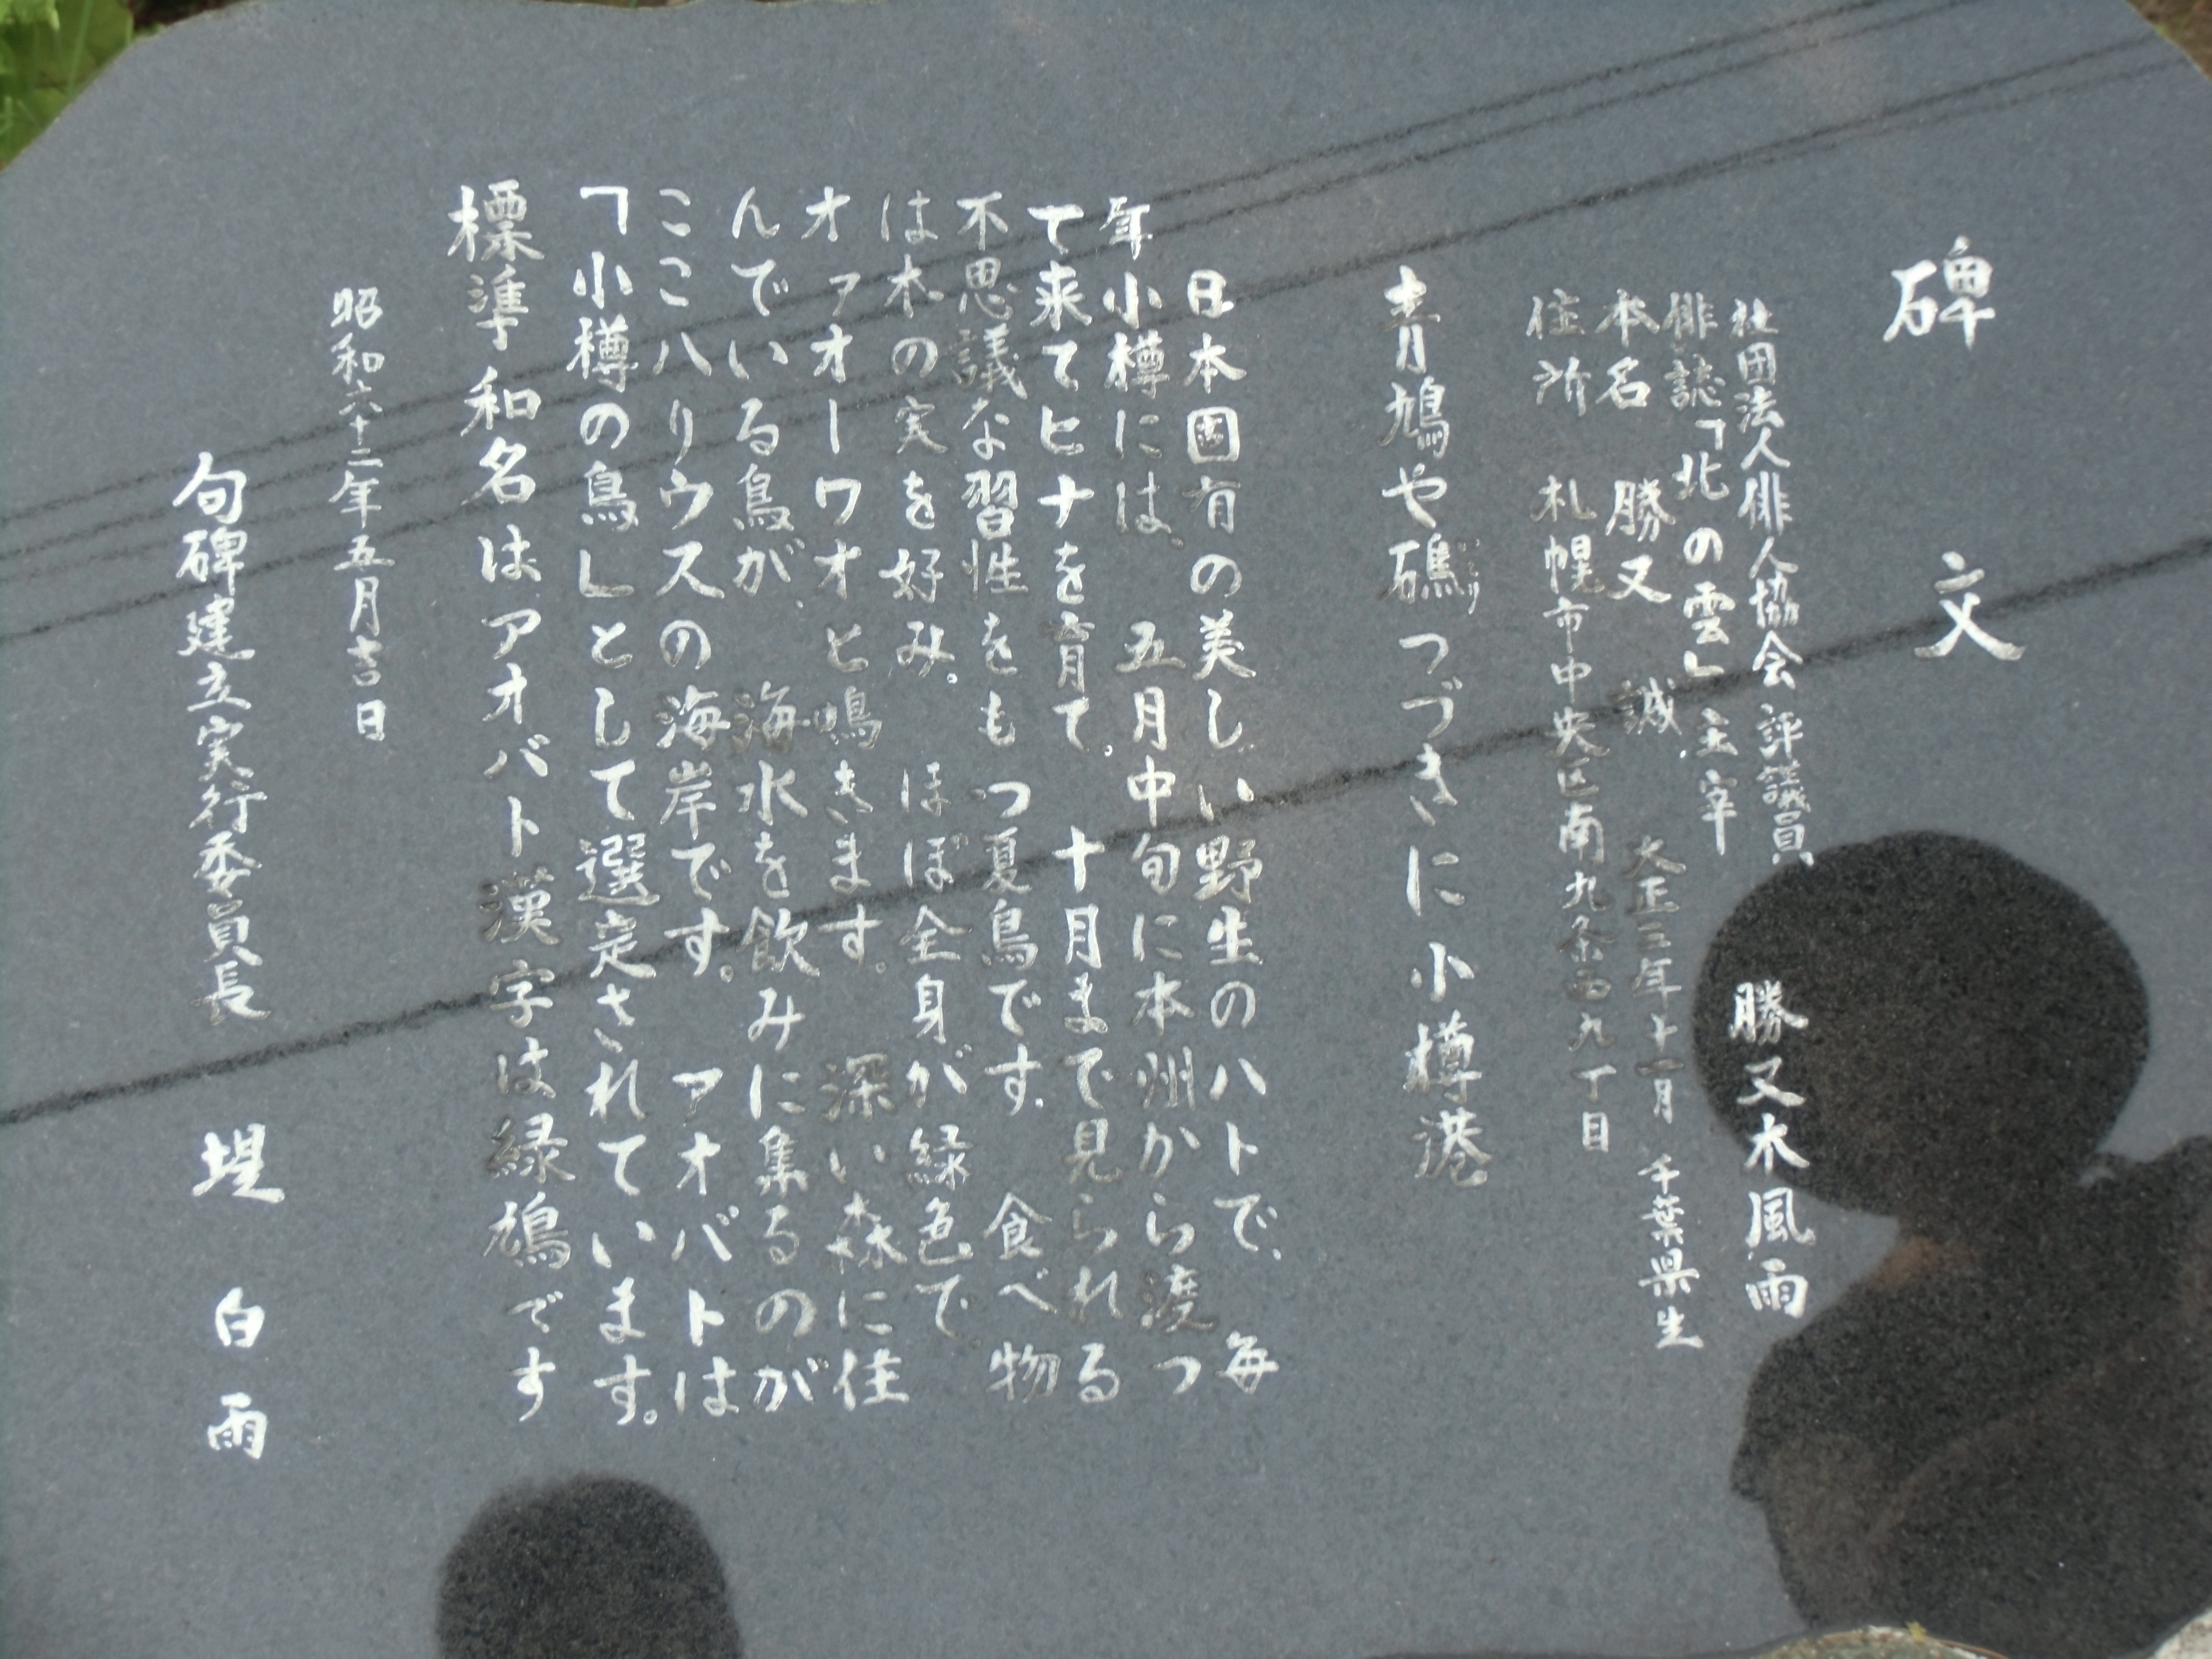 碑文
社団法人俳人協会評議員 勝又木風雨
俳誌「北の雲」主宰
本名 勝又 誠 大正三年十一月 千葉県生
住所 札幌市中央区南九条西九丁目
青鳩や礁つづきに小樽港
いくり
日本固有の美しい野生のハトで、毎
年小樽には、五月中旬に本州から渡っ
て来てヒナを育て。十月まで見られる
不思議な習性をもつ夏鳥です。食べ物
は木の実を好み。ほぼ全身が緑色で
オァオーワオと鳴きます。深い森に住
んでいる鳥が、海水を飲みに集るのが
ここハリウスの海岸です。アオバトは
「小樽の鳥」として選定されています。
標準和名はアオバト漢字は緑鳩です
昭和六十二年五月吉日
句碑建立実行委員長 堤 白雨